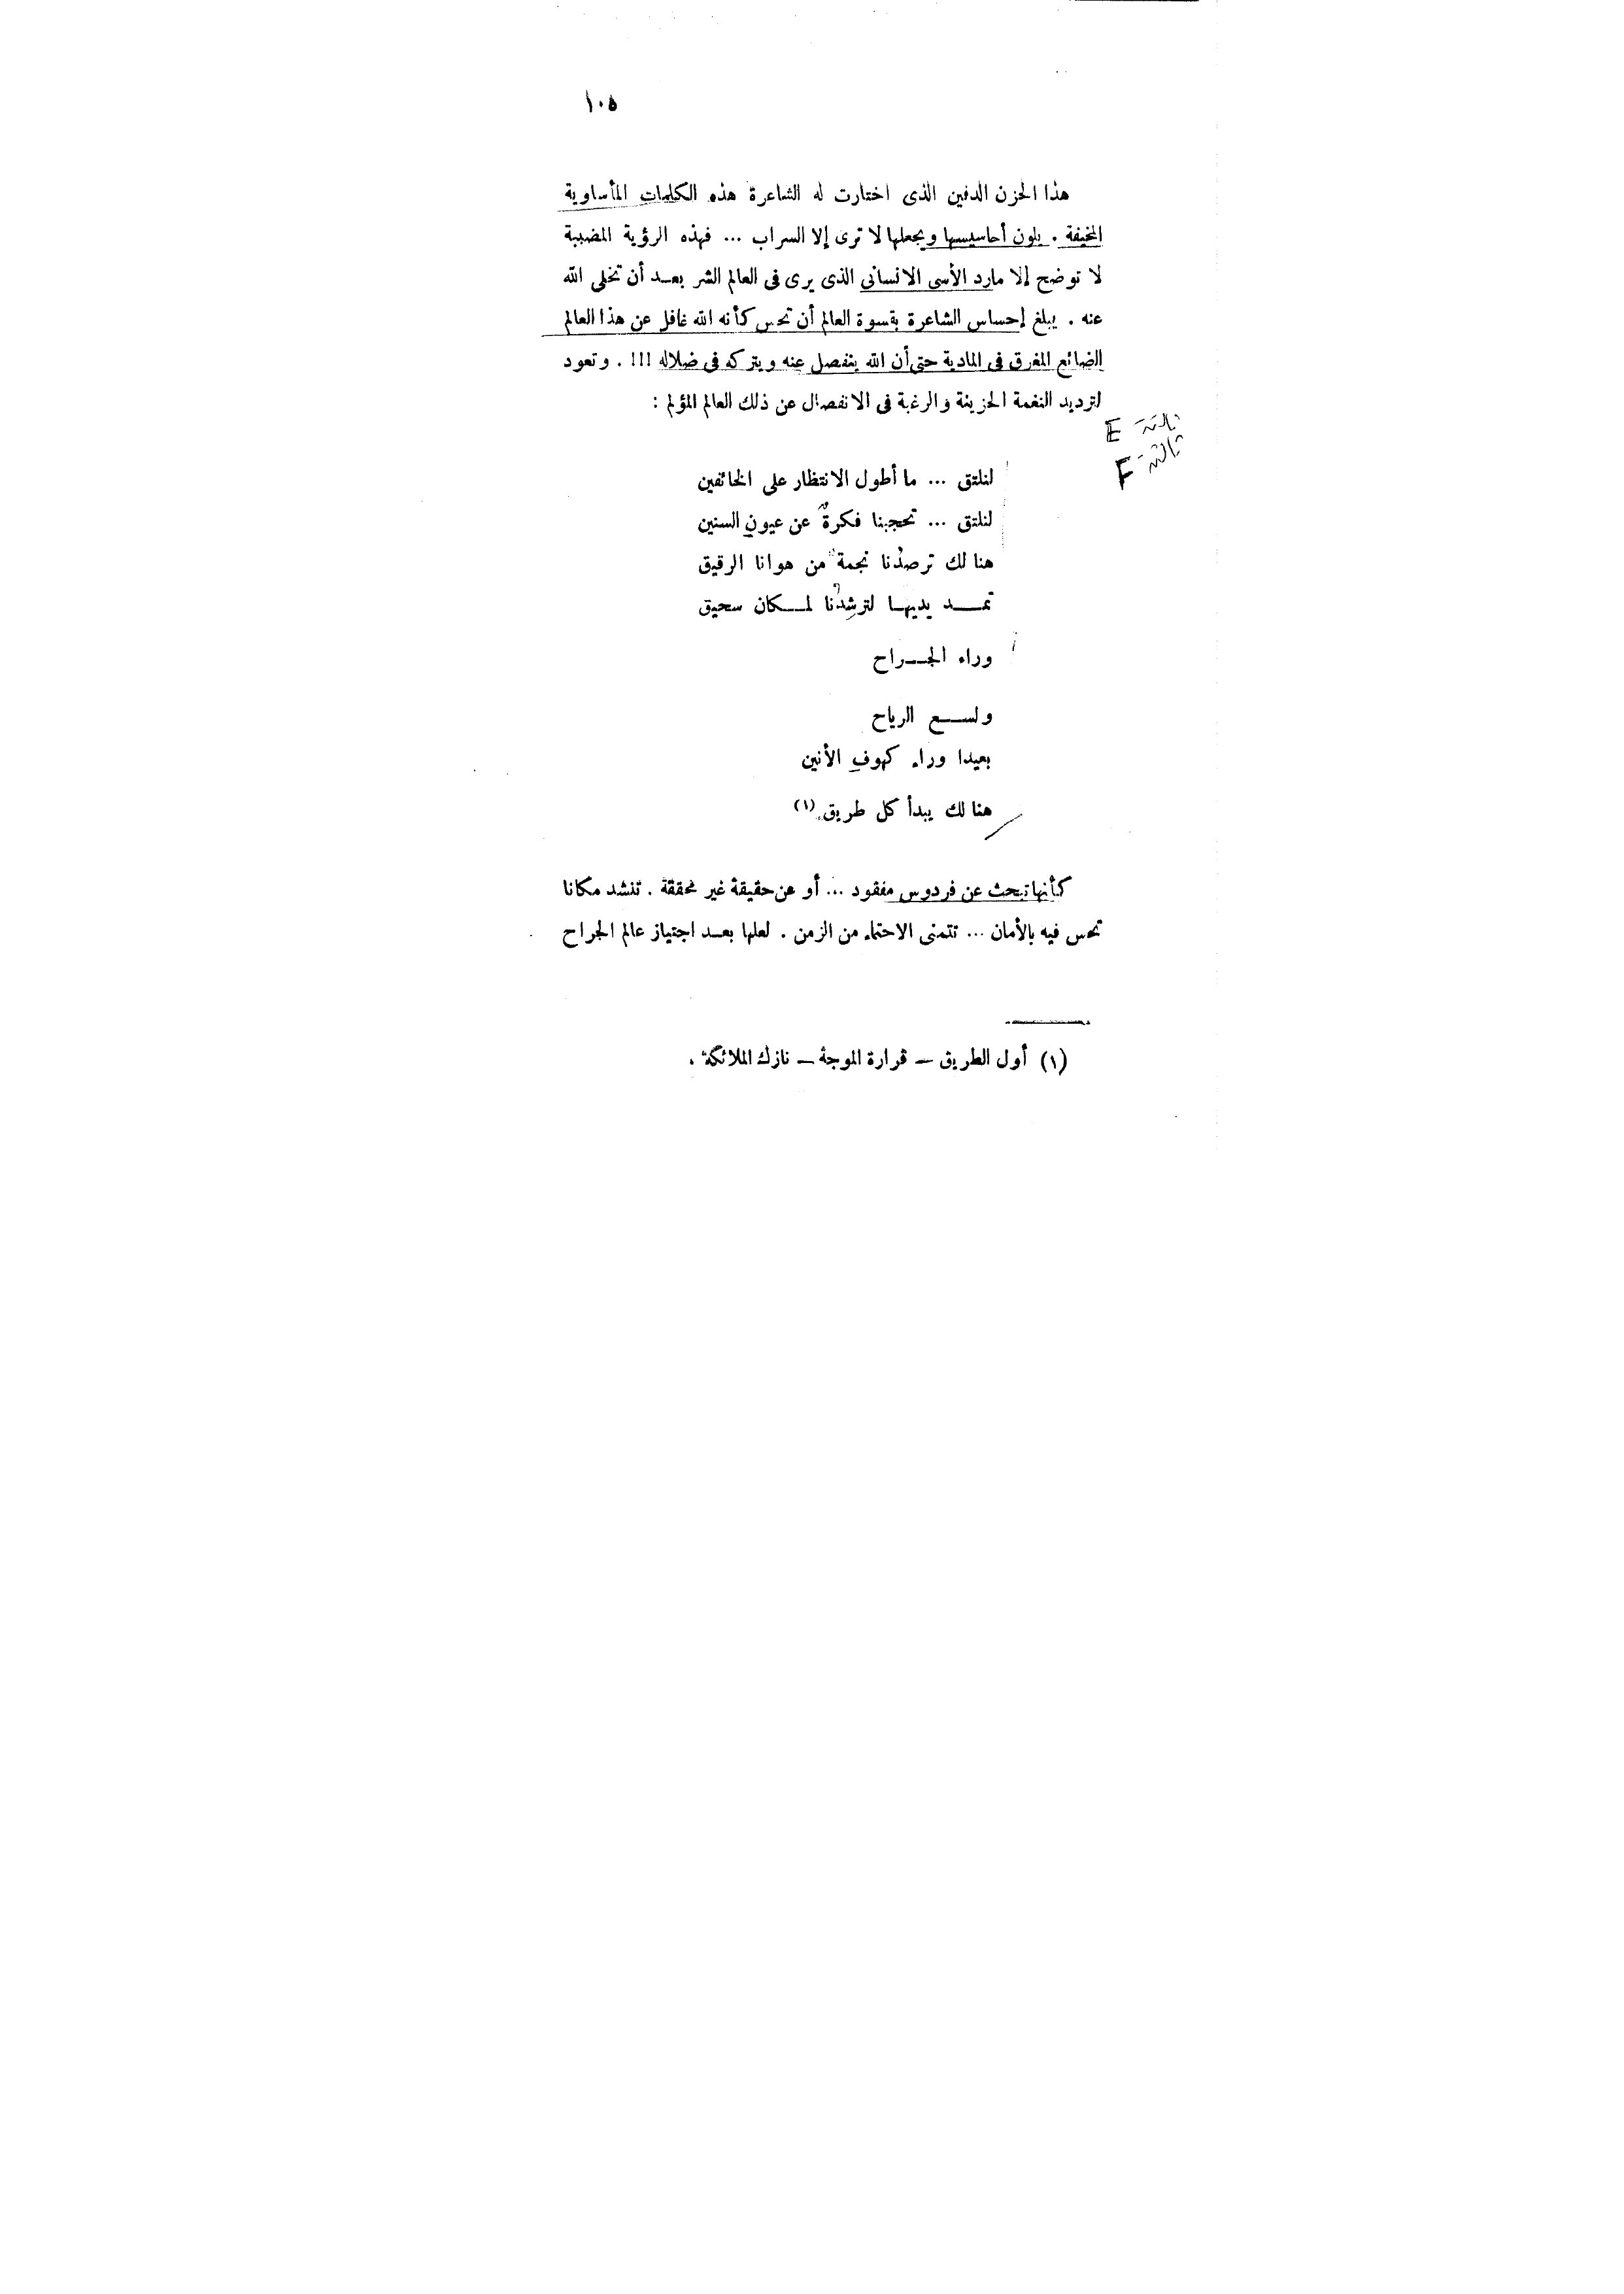 ١٠٥
هذا الحزن الدفين الذى اختارت له الشاعرة هذه الكلمات المأساوية
المخيفة . يلون أحاسيسها ويجعلها لا ترى إلا السراب ... فهذه الرؤية المضببة
لا توضح إلا مارد الأسى الانسانى الذى يرى فى العالم الشر بعد أن تخلى الله
عنه . يبلغ إحساس الشاعرة بقسوة العالم أن تحس كأنه الله غافل عن هذا العالم
الضائع المغرق فى المادية حتى أن الله ينفصل عنه ويتركه فى ضلاله !!! . وتعود
لترديد النغمة الحزينة والرغبة فى الانفصال عن ذلك العالم المؤلم :
E
F
لنلتق ... ما أطول الانتظار على الخائفين
لنلتق ... تحجبنا فكرةٌ عن عيونِ السنين
هنالك ترصدُنا نجمة من هوانا الرقيق
تمد يديها لترشِدُنا لمكان سحيق
وراء الجراح
ولسع الرياح
بعيدا وراء كهوفِ الأنين
هنالك يبدأ كل طريق (١)
كأنها تبحث عن فردوس مفقود ... أو عن حقيقة غير محققة . تنشد مكانا
تحس فيه بالأمان ... تتمنى الاحتماء من الزمن . لعلها بعد اجتياز عالم الجراح
(١) أول الطريق — قرارة الموجة — نازك الملائكة .